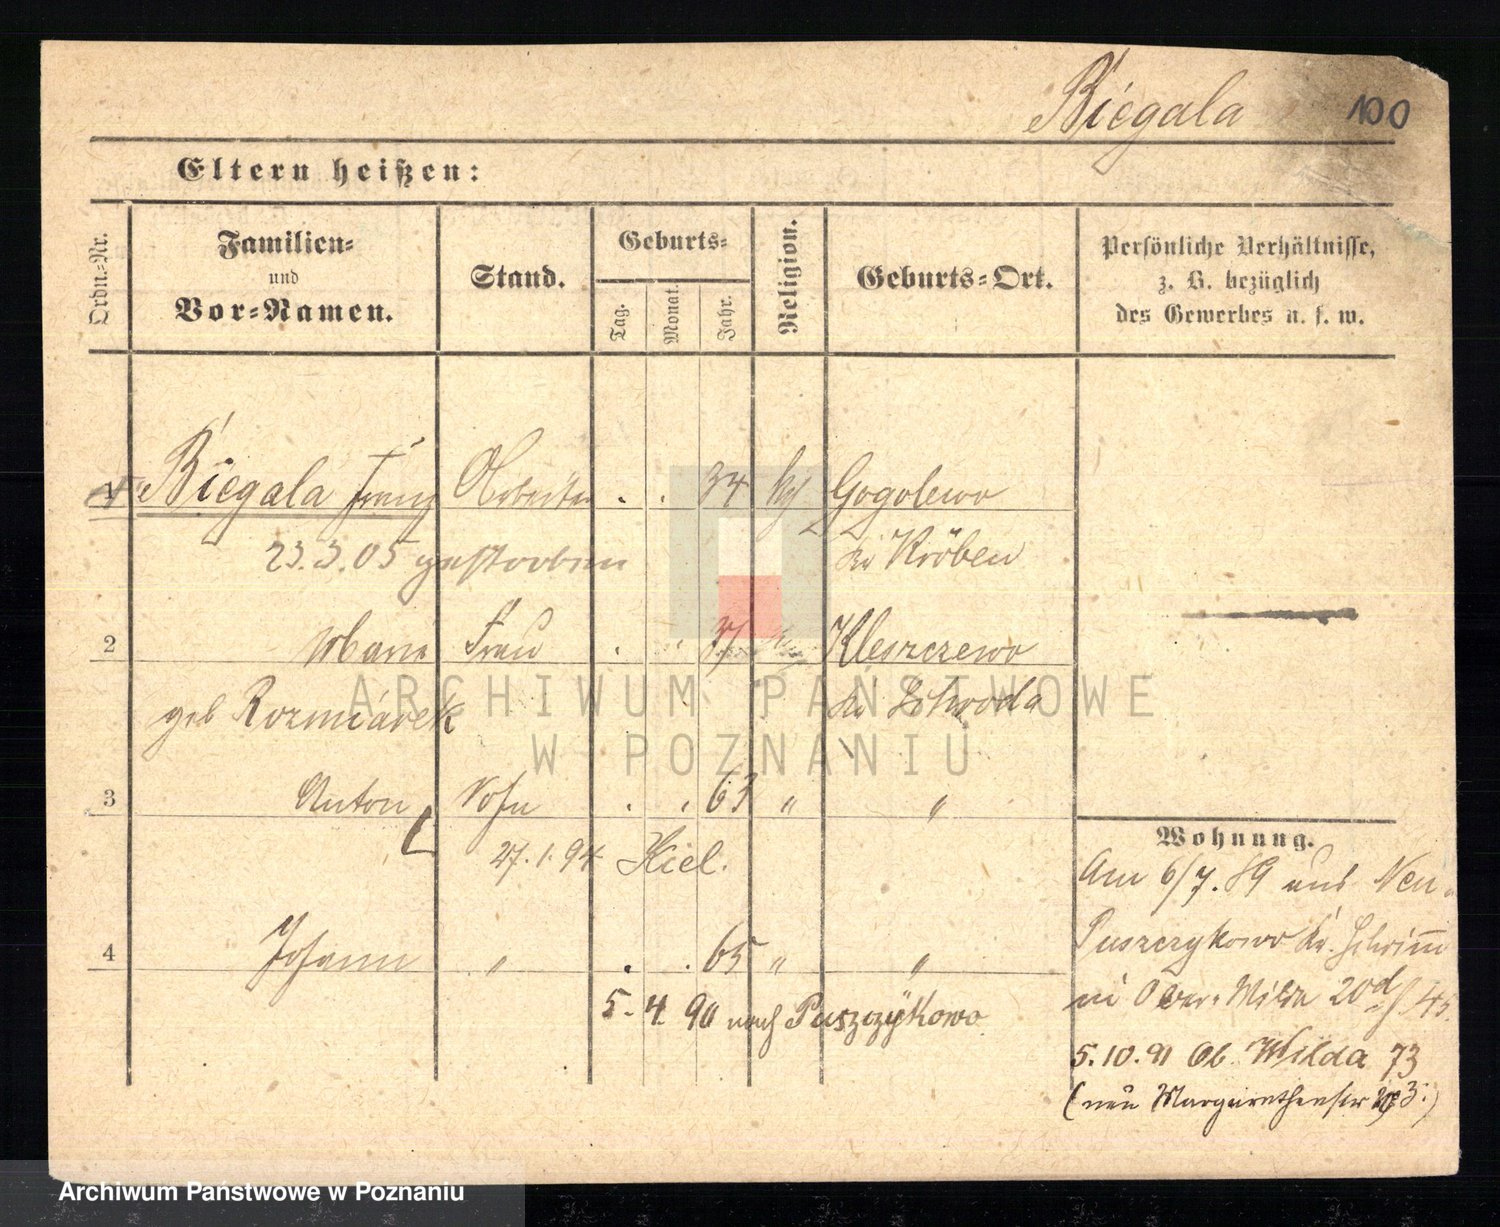 Biegala 100
Eltern heißen:
Ordn.-Nr. Familien- und Vor-Namen. Stand. Geburts- Tag. Monat. Jahr. Religion. Geburts-Ort. Persönliche Verhältnisse, z. B. bezüglich des Gewerbes u. s. w.
1 Biegala Franz Arbeiter . . 34 kth Gogolewo
23.3.05 gestorben Kr Kröben
2 Maria Frau . . 37 Kleszczewo
geb Rozmiarek Kr Schroda
3 Anton Sohn . . 63 " "
27.1.94 Kiel.
4 Johann " . . 65 " "
5. 4. 90 nach Puszczykowo
Wohnung.
Am 6/7.89 aus Neu-
Puszczykowo Kr. Schrimm
in Ober-Wilda 20
5.10.91 Ob. Wilda 73
(neu Margarethenstr 3.)
ARCHIWUM PAŃSTWOWE
W POZNANIU
Archiwum Państwowe w Poznaniu